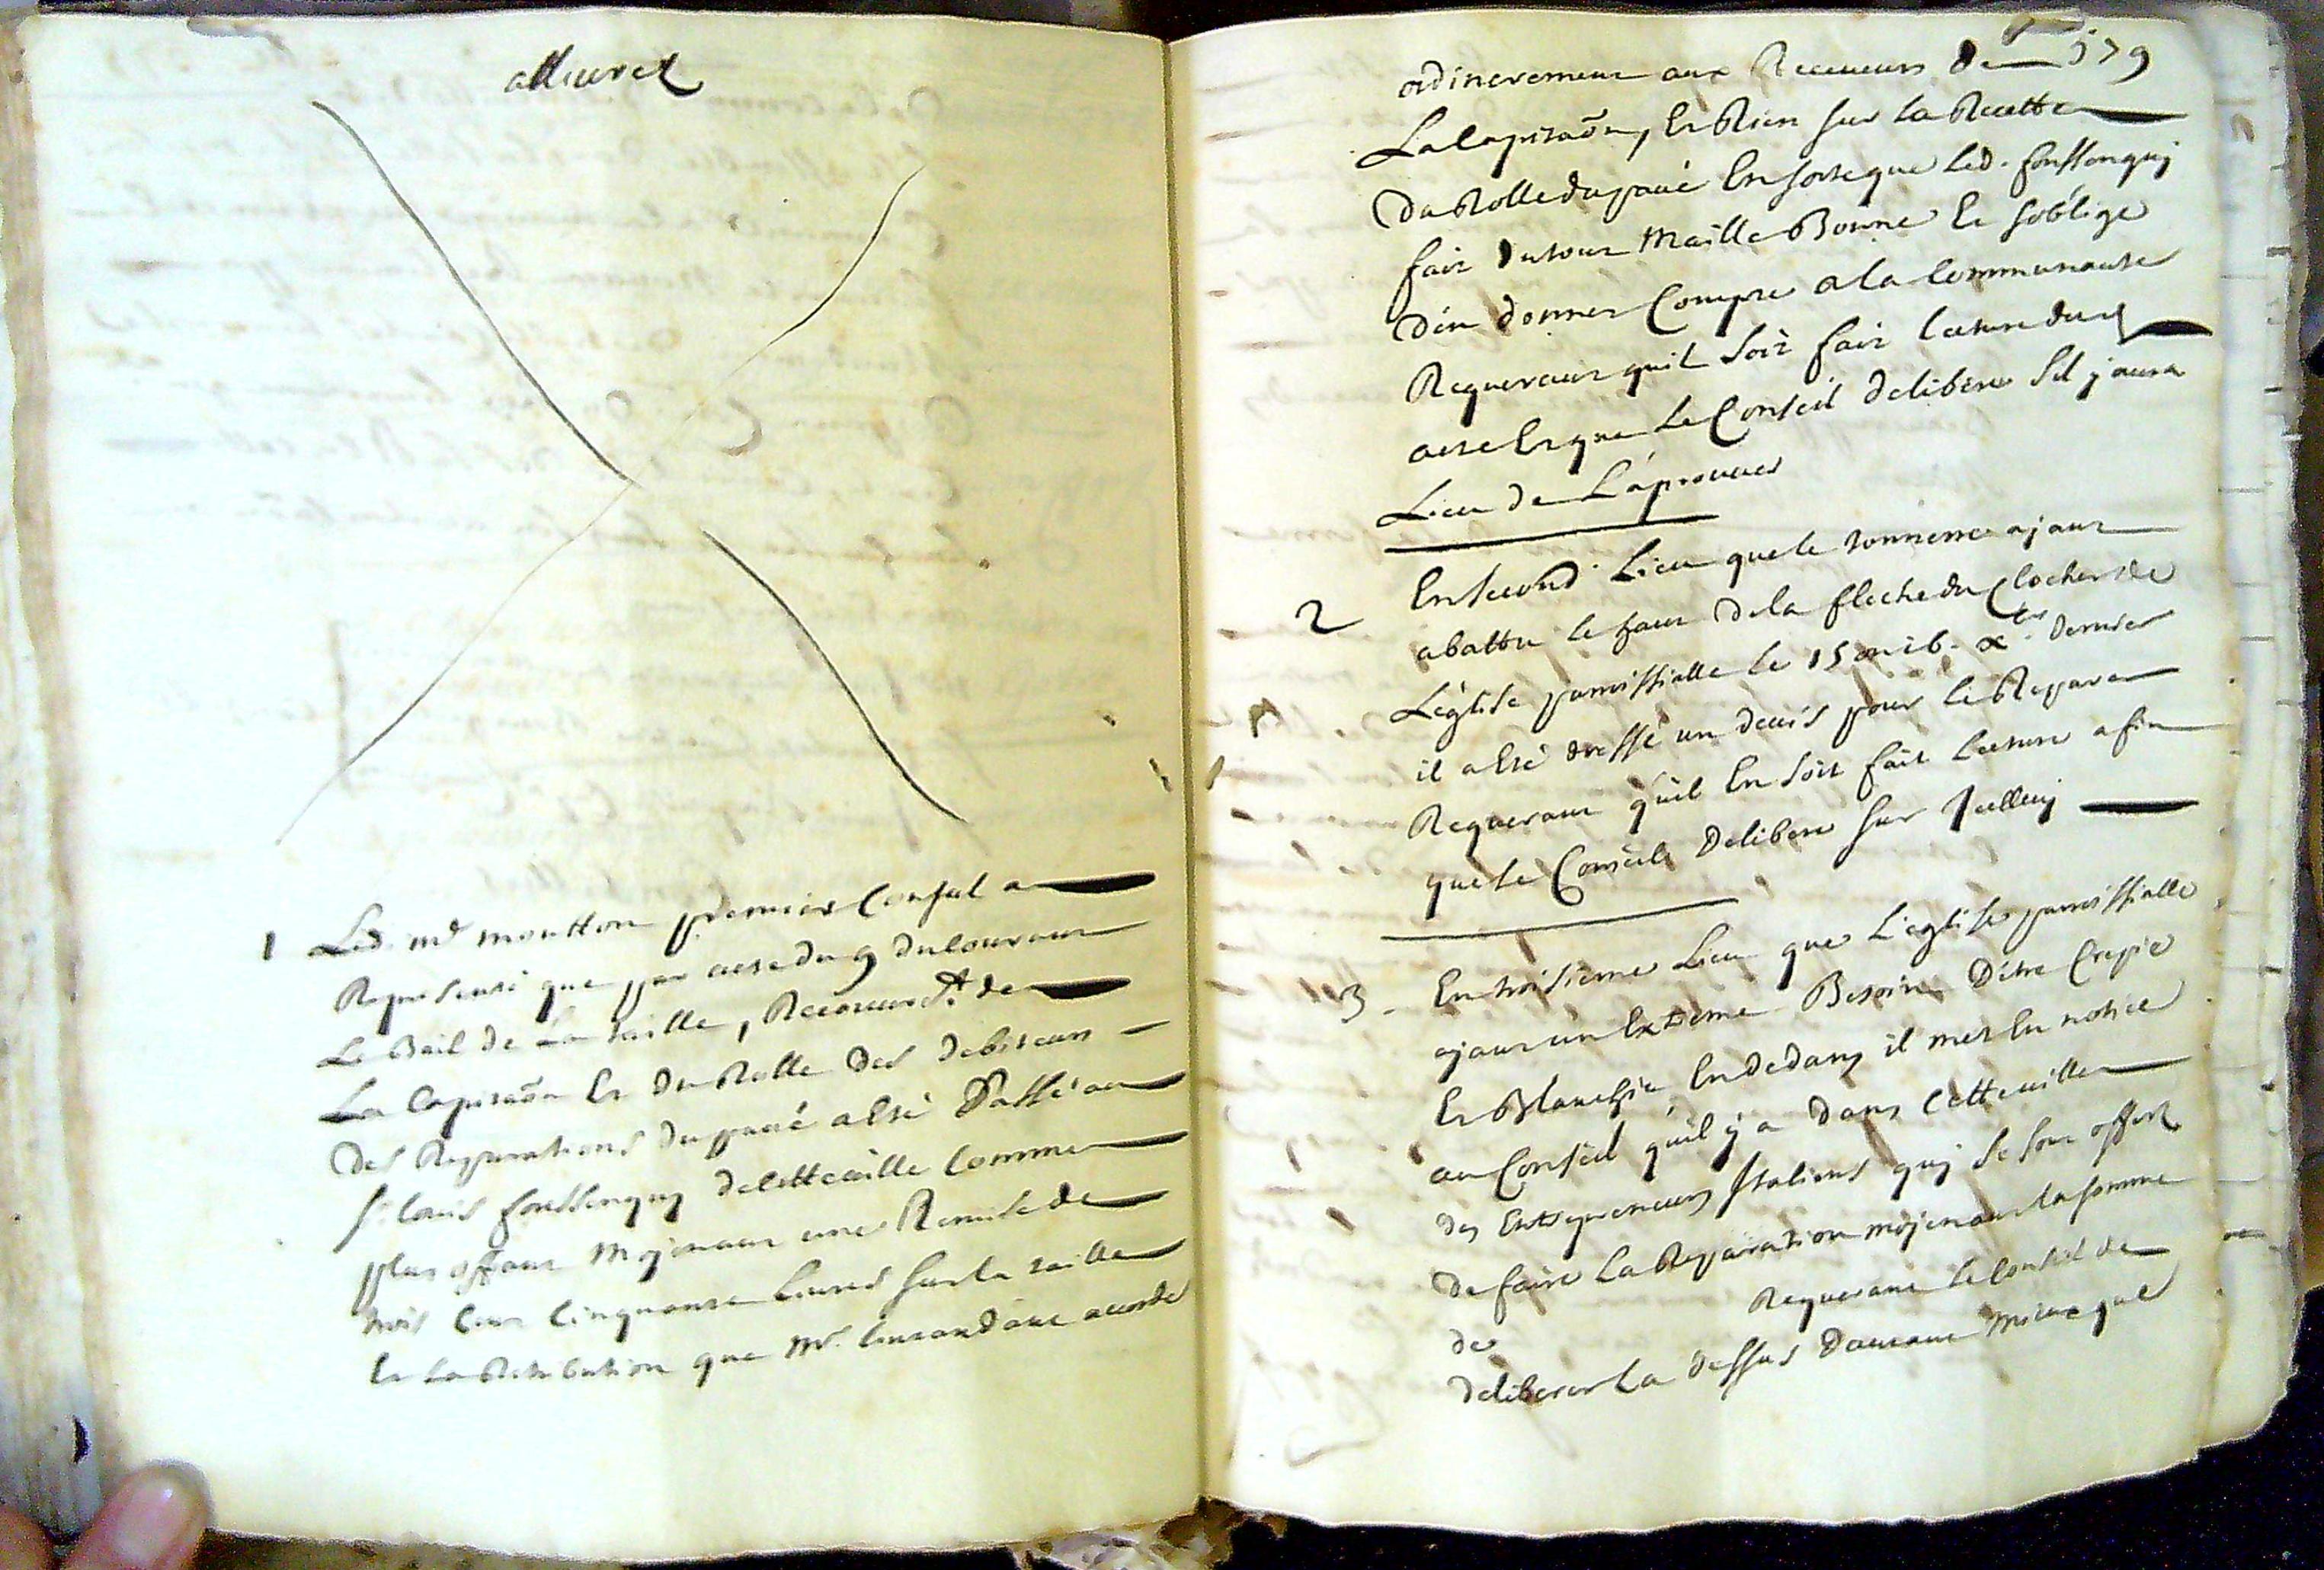 allivret
1 Led. mr moutton premier Consul a
Representé que par acte du 9 du Courant
Le Bail de La taille, Recouvrt. de
La Capitaõn Et du Rolle des debiteurs
des Reparations du pavé a Esté Passé au
sr. Louis fonssenquy de cette ville Comme
plus offrant Mojenant une Remise de
trois Cens Cinquante Livres sur la taille
Et La Retribution que Mr. Lintandant accorde
579
ordinerement aux Receveurs De
La Capitaõn, Et Rien sur la Recette
Du Rolle du pavé En sorte que Led. fonssenquj
fait du tout Maille Bonne Et s'oblige
D'en donner Compte a la Communauté
Requerant quil soit fait Lecture dud
acte Et que Le Conseil delibere sil j aura
Lieu de L'aprouver
2 En second Lieu que le tonnerre ajant
abattu le haut de la fleche du Clocher de
L'eglise parroissialle le 15 ou 16. xbre Dernier
il a Esté dressé un devis pour Le Reparer
Requerant qu'il En soit fait Lecture afin
que le Conseil Delibere sur Icelluj
3 En troisieme Lieu que L'eglise parroissialle
ajant un Extreme Besoin D'etre Crepie
Et Blanchie En dedans il met En notice
au Conseil qu'il y a dans Cette ville
des Entrepreneurs Italiens quj se sont offerts
de faire La Reparation mojenant la somme
de Requerant Le Conseil de
deliberer La dessus Dautant mieux que